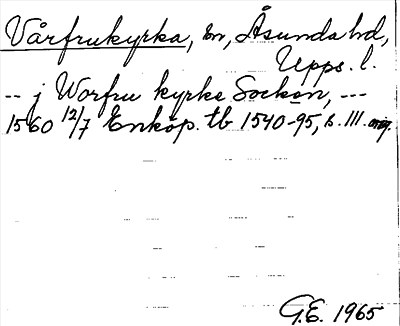 Vårfrukyrka, sn, Åsunda hd,
Upps. l.
-- j Worfru kyrke Sockön, ---
1560 12/7 Enköp. tb 1540-95, s. 111. orig.
G.E. 1965